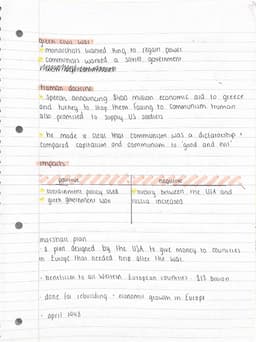 greek civil war
monarchists wanted king to regain power
communists wanted a soviet government
truman doctrine
speech announcing $400 million economic aid to greece
and turkey to stop them falling to communism. truman
also promised to supply US soldiers
he made it clear that communism was a dictatorship +
compared capitalism and communism to 'good and evil'
impacts
positive
negative
containment policy used
rivalry between the USA and
greek government won
russia increased
marshall plan
a plan designed by the USA to give money to countries
in Europe that needed help after the war.
- beneficial to all Western European countries - $13 billion
- done for rebuilding + economic growth in Europe
- april 1948